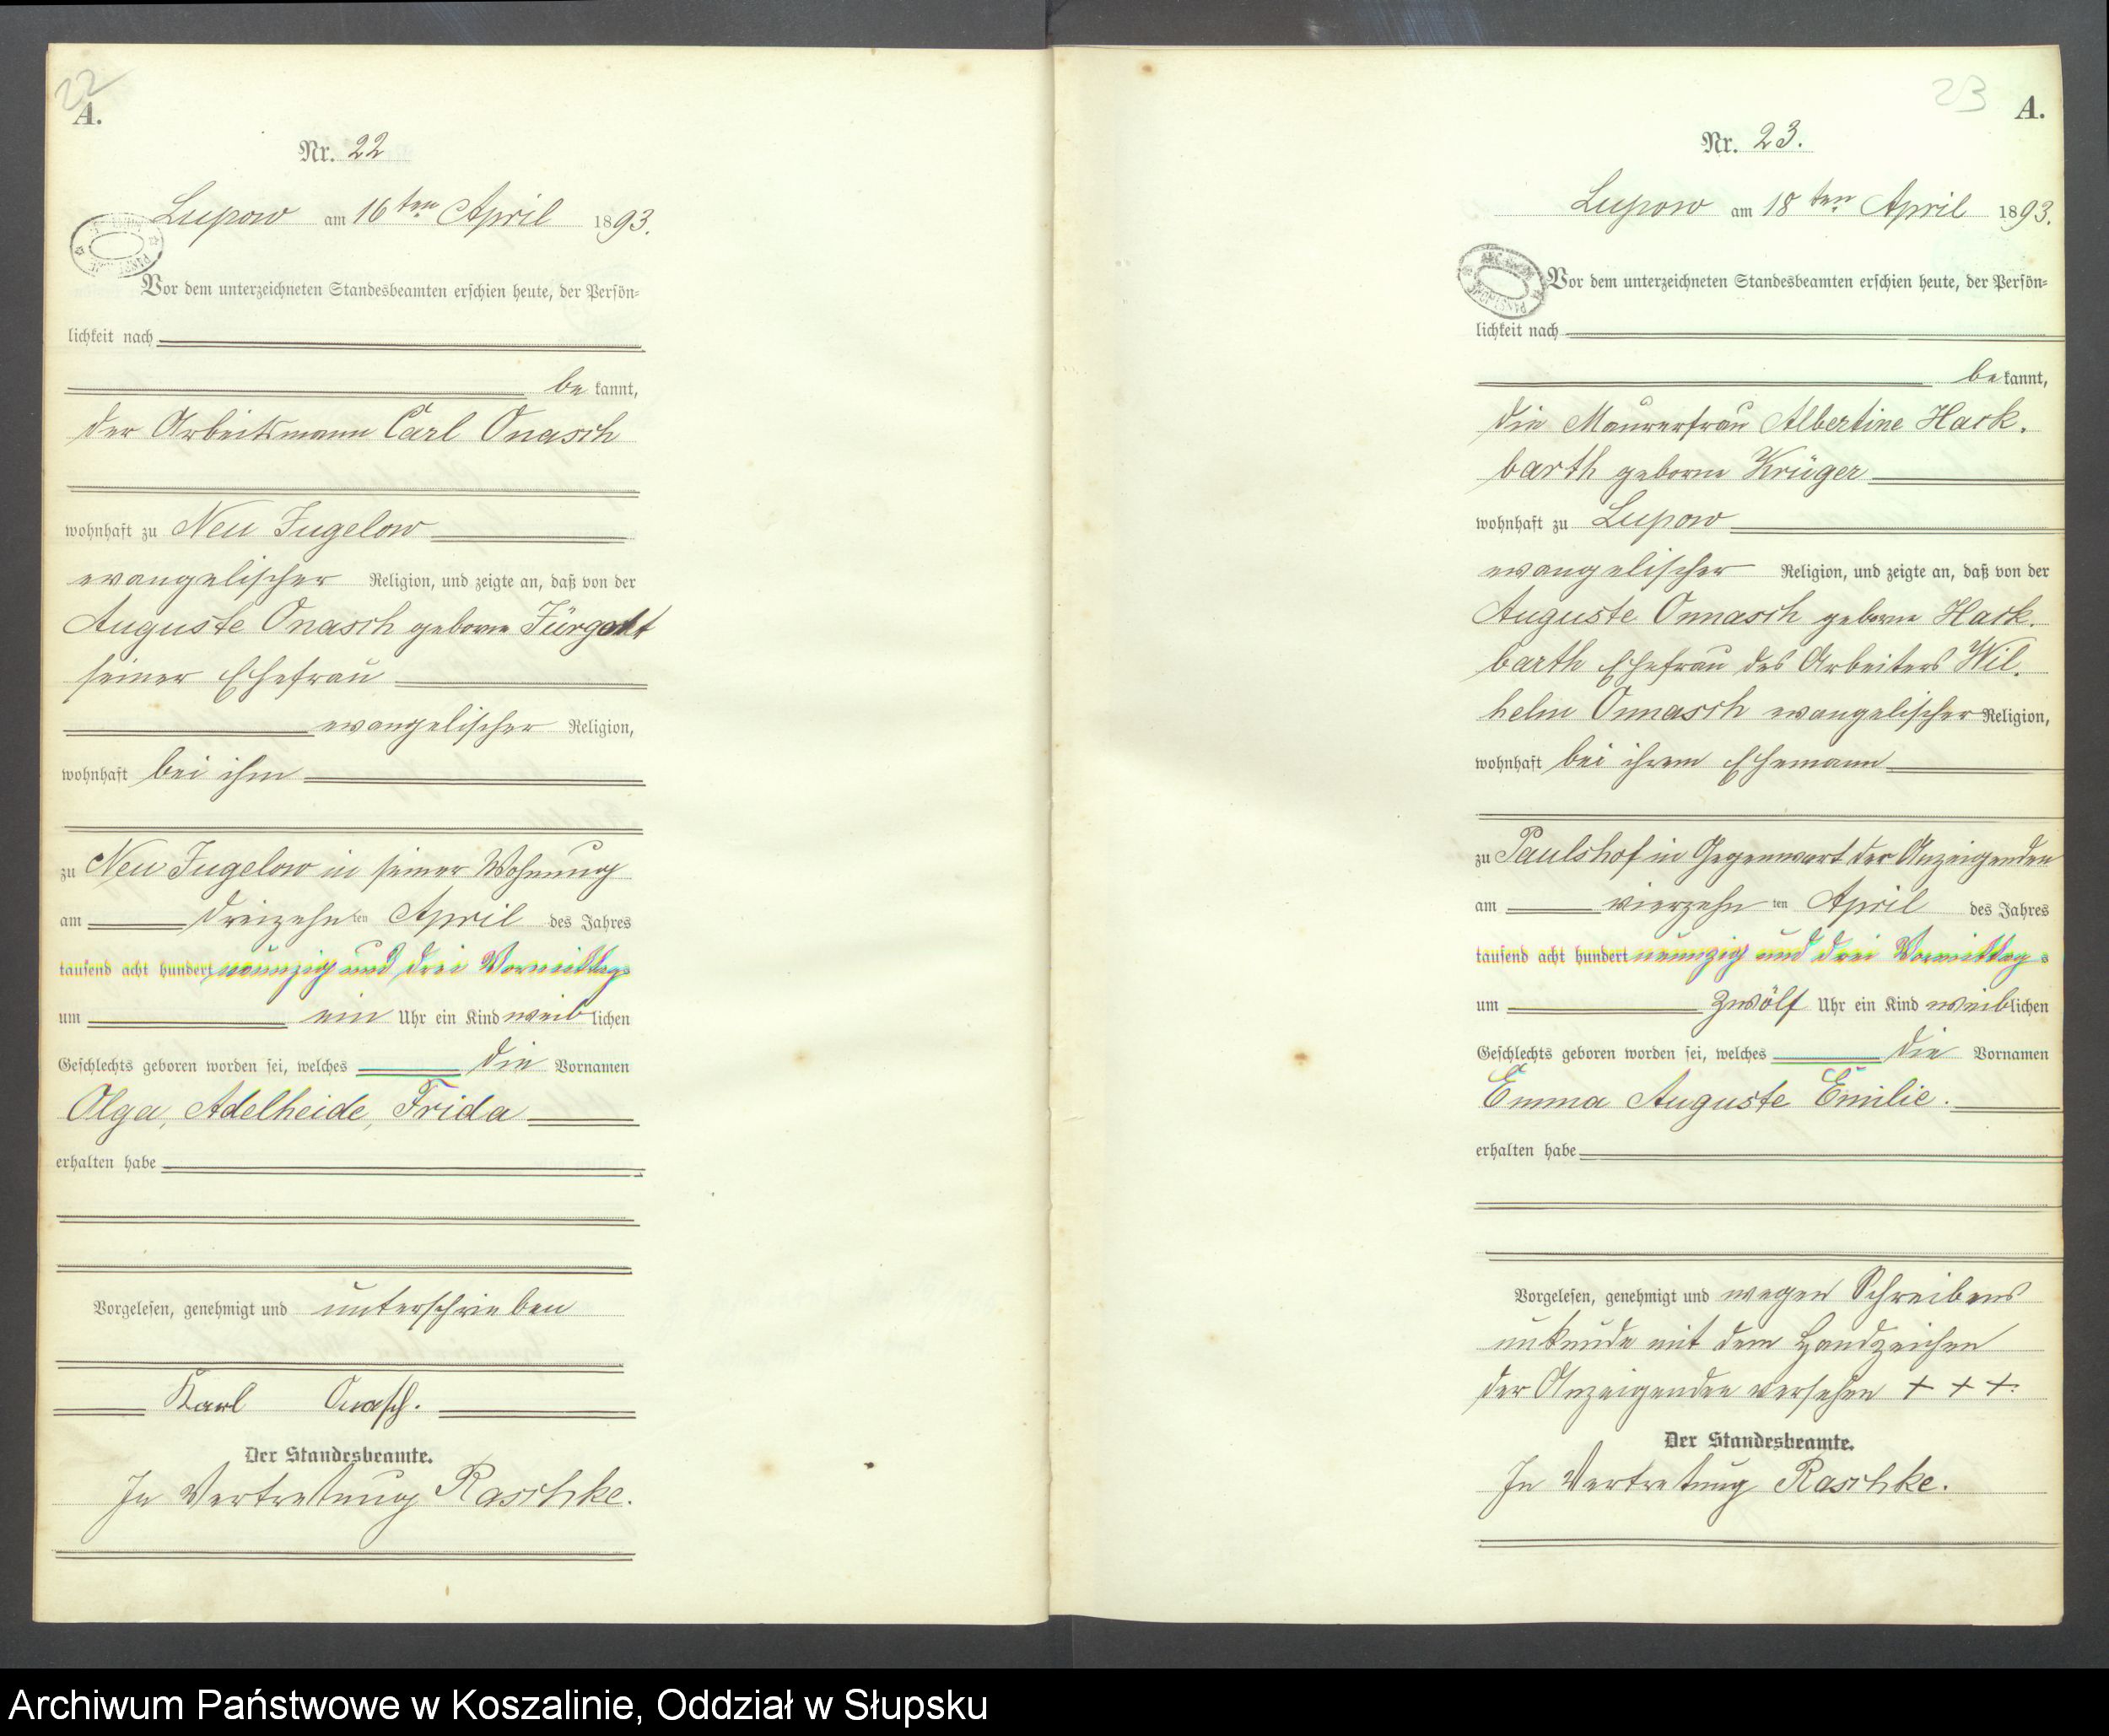 22
A.
Nr. 22
Lupow am 16ten April 1893.
Vor dem unterzeichneten Standesbeamten erschien heute, der Persön-
lichkeit nach
be kannt,
der Arbeitsmann Carl Onasch
wohnhaft zu Neu Jugelow
evangelischer Religion, und zeigte an, daß von der
Auguste Onasch geborne
seiner Ehefrau
evangelischer Religion,
wohnhaft bei ihm
zu Neu Jugelow in seiner Wohnung
am dreizehn ten April des Jahres
tausend acht hundert neunzig und drei Vormittags
um ein Uhr ein Kind weib lichen
Geschlechts geboren worden sei, welches die Vornamen
Olga, Adelheide, Frida
erhalten habe
Vorgelesen, genehmigt und unterschrieben
Karl Onasch.
Der Standesbeamte.
In Vertretung Raschke.
23
A.
Nr. 23.
Lupow am 18ten April 1893.
Vor dem unterzeichneten Standesbeamten erschien heute, der Persön-
lichkeit nach
be kannt,
die Maurerfrau Albertine Hack-
barth geborne Krüger
wohnhaft zu Lupow
evangelischer Religion, und zeigte an, daß von der
Auguste Onnasch geborne Hack-
barth Ehefrau des Arbeiters Wil-
helm Onnasch evangelischer Religion,
wohnhaft bei ihrem Ehemann
zu Paulshof in Gegenwart der Anzeigenden
am vierzehn ten April des Jahres
tausend acht hundert neunzig und drei Vormittag s
um zwölf Uhr ein Kind weiblichen
Geschlechts geboren worden sei, welches die Vornamen
Emma Auguste Emilie.
erhalten habe
Vorgelesen, genehmigt und wegen Schreibens
unkunde mit dem Handzeichen
der Anzeigenden versehen + + +.
Der Standesbeamte.
In Vertretung Raschke.
Archiwum Państwowe w Koszalinie, Oddział w Słupsku